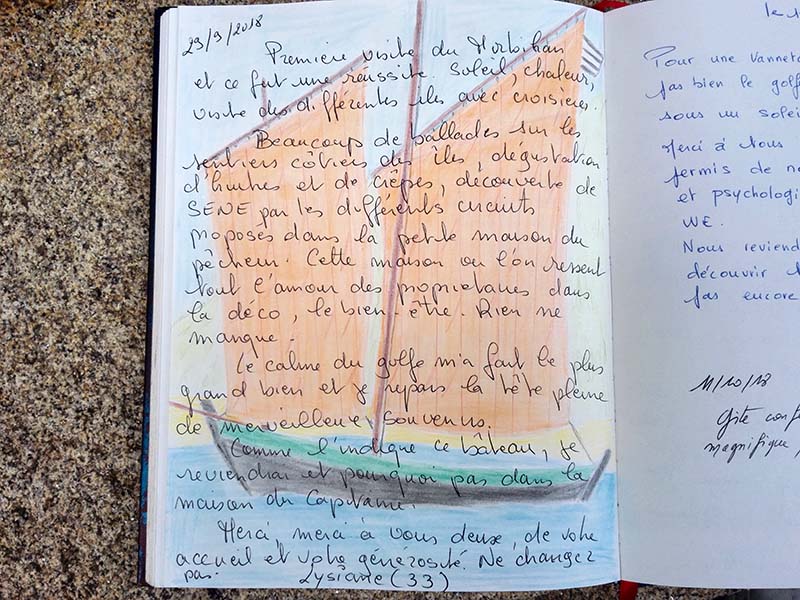 29/9/2018
Première visite du Morbihan
et ce fut une réussite. Soleil, chaleur,
visite des différentes iles avec croisières.
Beaucoup de ballades sur les
sentiers côtiers des îles, dégustation
d'huitres et de crêpes, découverte de
SENE par les différents circuits
proposés dans la petite maison du
pêcheur. Cette maison ou l'on ressent
tout l'amour des propriétaires dans
la déco, le bien-être. Rien ne
manque.
Le calme du golfe m'a fait le plus
grand bien et je repars la tête pleine
de merveilleux souvenirs.
Comme l'indique ce bâteau, je
reviendrai et pourquoi pas dans la
maison du Capitaine.
Merci, merci à vous deux, de votre
accueil et votre générosité. Ne changez
pas. Lysiane (33)
le
Pour une Vanneta
pas bien le golfe
sous un soleil
Merci à Vous
permis de
et psychologi
WE.
Nous reviend
découvrir
pas encore
11/10/18
Gite conf
magnifique